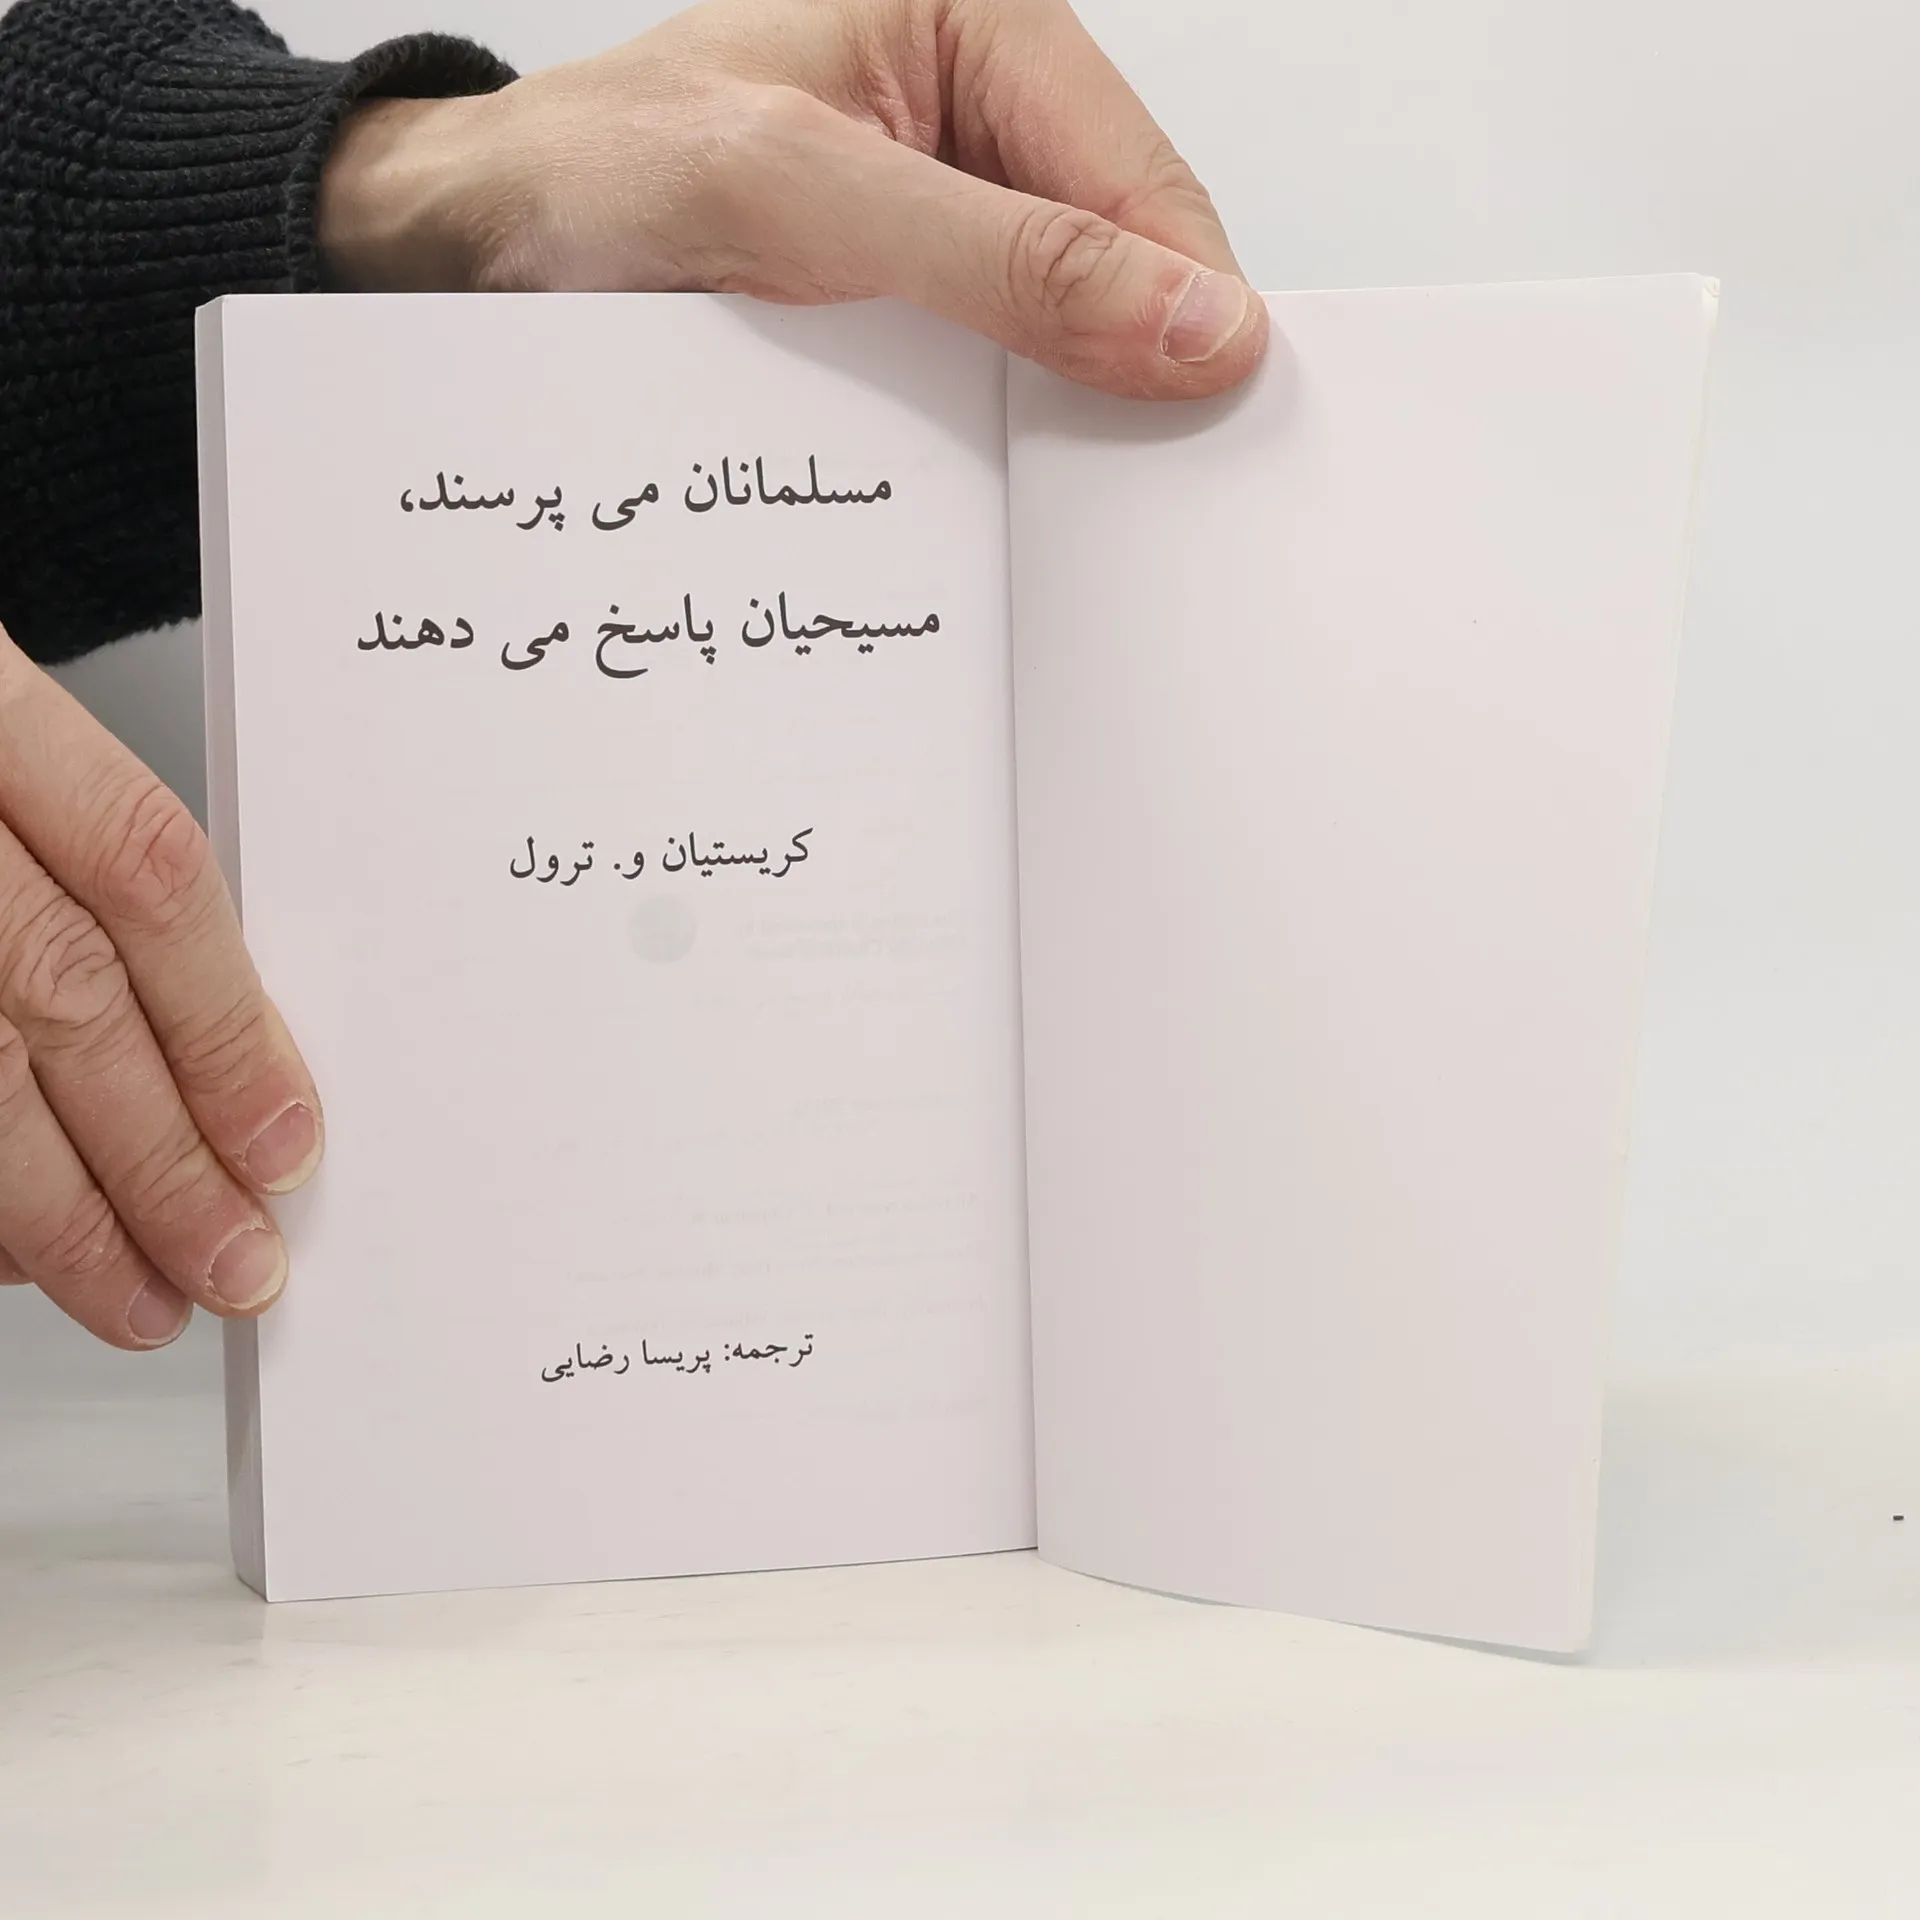 مسلمانان می پرسند،
مسیحیان پاسخ می دهند
کریستیان و. ترول
ترجمه: پریسا رضایی